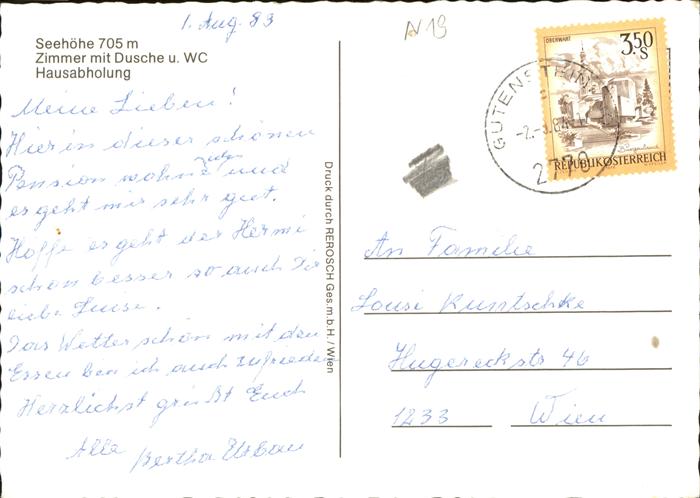 1. Aug. 83
N 19
Seehöhe 705 m
Zimmer mit Dusche u. WC
Hausabholung
Meine Lieben!
Hier in dieser schönen
Pension wohne und
es geht mir sehr gut.
Hoffe es geht der Hermi
schon besser so auch Dir
liebe Luise.
Das Wetter schön mit den
Essen bin ich auch zufrieden
Herzlichst grüßt Euch
Alle Bertha Urban
Druck durch REROSCH Ges.m.b.H./Wien
OBERWART
3.50
S
Burgenland
REPUBLIK ÖSTERREICH
GUTENST
2770
An Familie
Louisi Kuntschke
Hugereckstr 46
1233 Wien